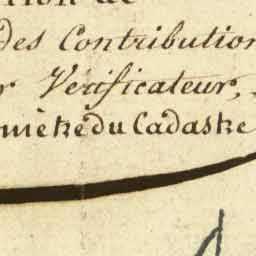 tion de
des Contribution
r Verificateur,
mètre du Cadastre